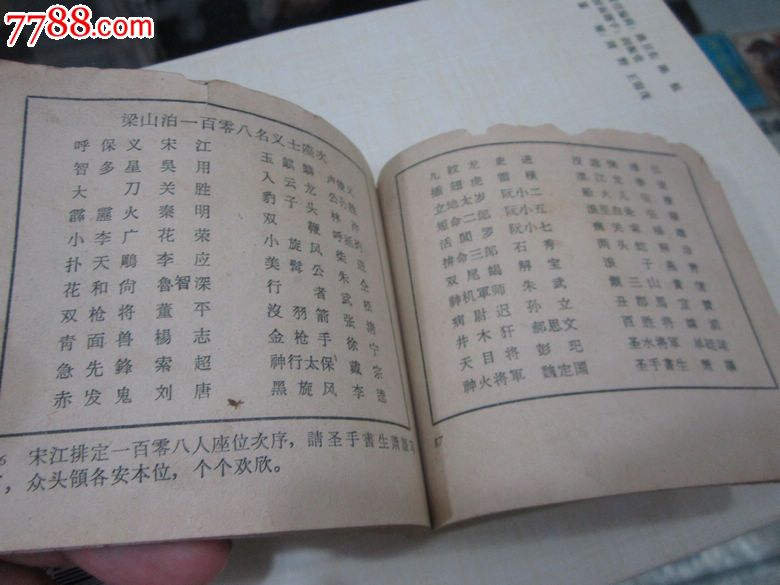 7788.com
梁山泊一百零八名义士座次
呼保义 宋江
智多星 吳用
大刀 关胜
霹靂火 秦明
小李广 花荣
扑天鵰 李应
花和尙 魯智深
双枪将 董平
靑面兽 楊志
急先鋒 索超
赤发鬼 刘唐
玉麒麟 卢俊义
入云龙 公孙胜
豹子头 林冲
双鞭 呼延灼
小旋风 柴进
美髯公 朱仝
行者 武松
沒羽箭 张清
金枪手 徐宁
神行太保 戴宗
黑旋风 李逵
6 宋江排定一百零八人座位次序，請圣手書生萧讓写
，众头領各安本位，个个欢欣。
九紋龙 史进
插翅虎 雷横
立地太岁 阮小二
短命二郎 阮小五
活閻罗 阮小七
拚命三郎 石秀
双尾蝎 解宝
神机軍师 朱武
病尉迟 孙立
井木犴 郝思文
天目将 彭玘
神火将軍 魏定国
浪子 燕青
丑郡馬 宣贊
百胜将
圣水将軍
圣手書生
87